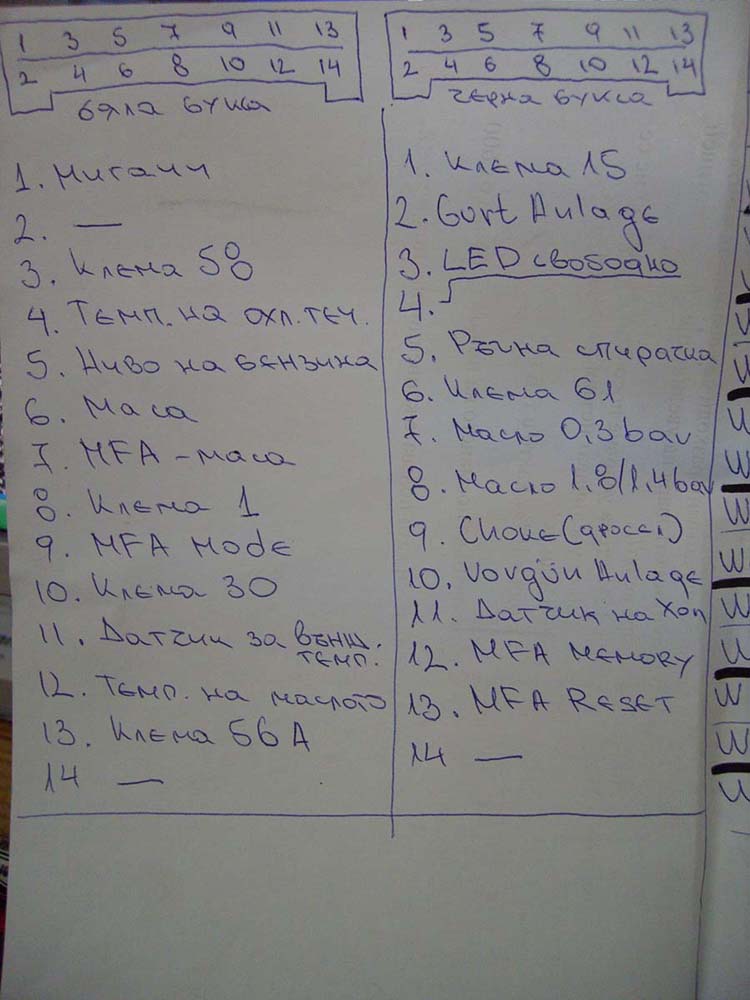 1 3 5 7 9 11 13
2 4 6 8 10 12 14
бяла букса
1. Мигачи
2. —
3. Клема 58
4. Темп. на охл. теч.
5. Ниво на бензина
6. Маса
7. MFA - маса
8. Клема 1
9. MFA MODE
10. Клема 30
11. Датчик за външ.
темп.
12. Темп. на маслото
13. Клема 56 A
14 —
1 3 5 7 9 11 13
2 4 6 8 10 12 14
черна букса
1. Клема 15
2. Gurt Anlage
3. LED свободно
4.
5. Ръчна спирачка
6. Клема 61
7. Масло 0,3 bar
8. Масло 1,8/1,4 bar
9. CHOKE (дросел)
10. Vorgün Anlage
11. Датчик на Хол
12. MFA MEMORY
13. MFA RESET
14 —